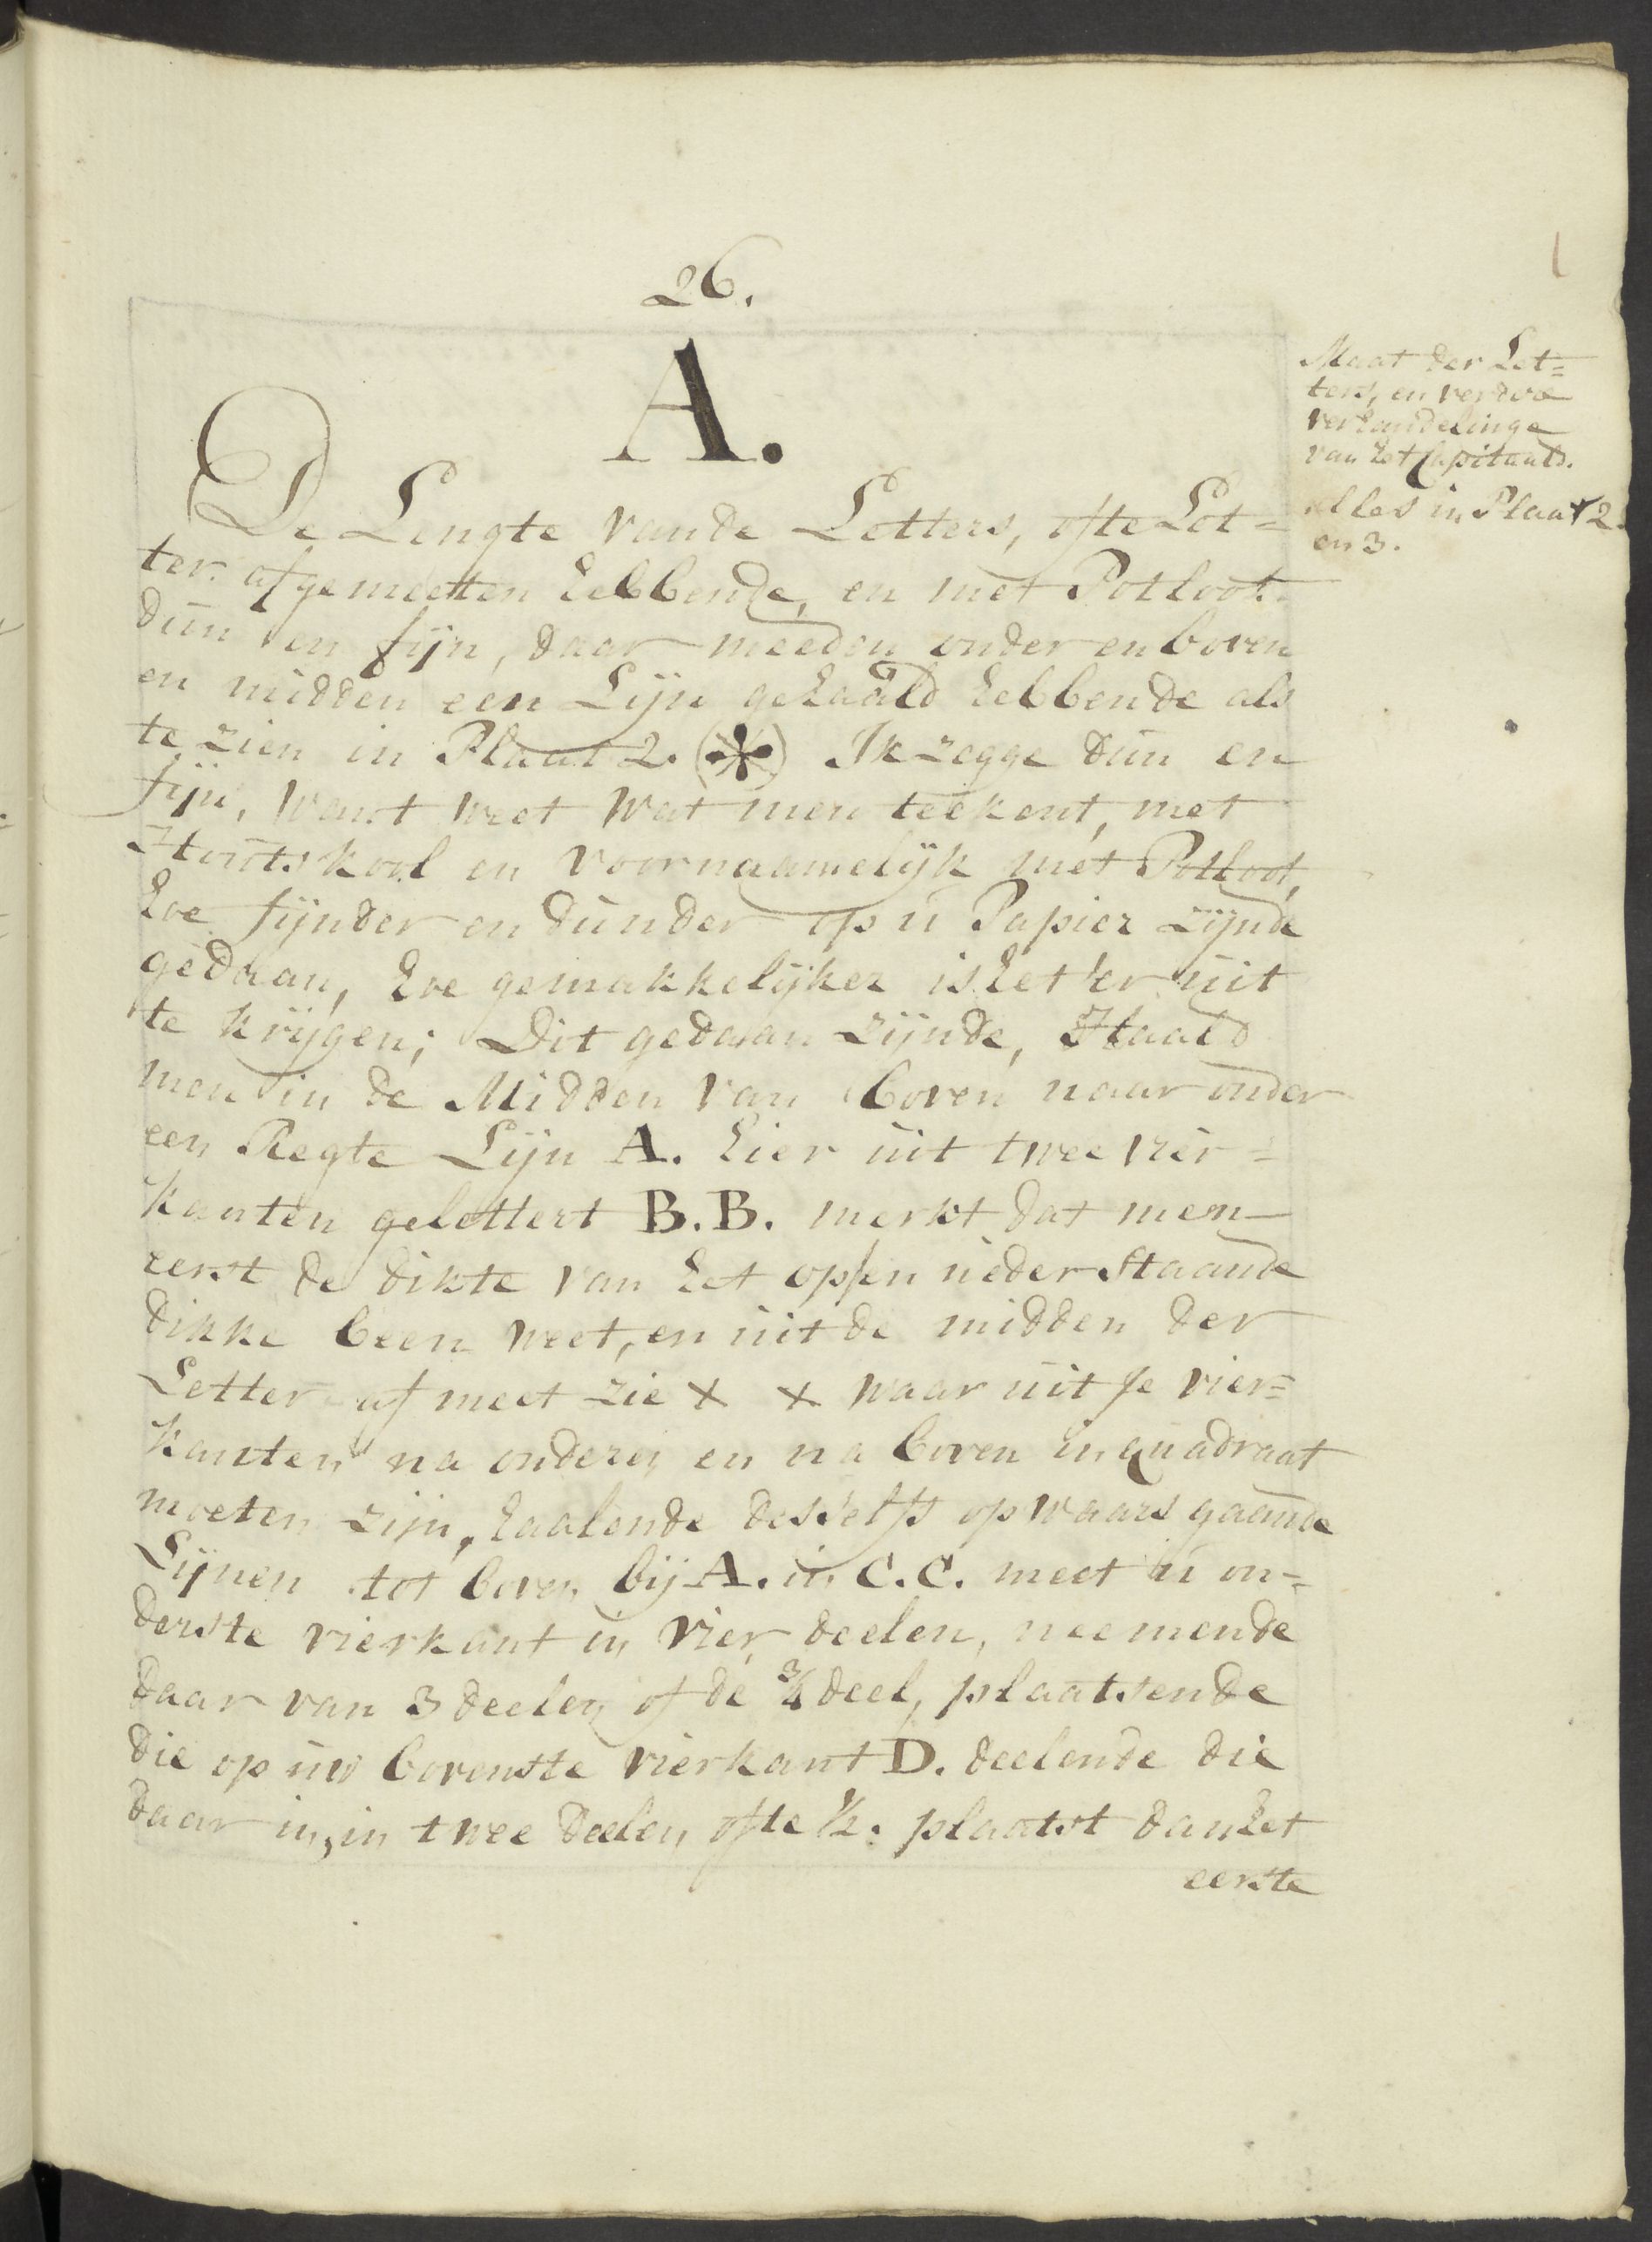 26.
A.
De Lengte vande Letters, ofte Let=
ter afgemeetten hebbende, en met Potloot
dun en fijn, daar meeden onder en boven
en midden een Lijn gehaald hebbende als
te zien in Plaat 2. (*) Ik zegge dun en
fijn, want weet wat men teekent, met
Houtskool en voornaamelijk met Potloot,
hoe fijnder en dunder op u Papier zijnde
gedaan, hoe gemakkelijker is het 'er uit
te krijgen; Dit gedaan zijnde, Haald
men in de Midden van boven naar onder
een Regte Lijn A. hier uit twee vier=
kanten gelettert B.B. merkt dat men
eerst de dikte van het op en neder Staande
dikke been weet, en uit de midden der
Letter af meet zie + + waar uit je vier=
kanten na onderen en na boven in quadraat
moeten zijn, haalende deszelfs opwaars gaande
Lijnen tot boven bij A. in C.C. meet u on=
derste vierkant in vier deelen, neemende
daar van 3 deelen of de 3/4 deel, plaatsende
die op uw bovenste vierkant D. deelende die
daar in, in twee deelen ofte 1/2. plaatst dan het
eerste
Maat der Let=
ters, en verdre
verhandelinge
van het Capitaals.
Alles in Plaat 2.
en 3.